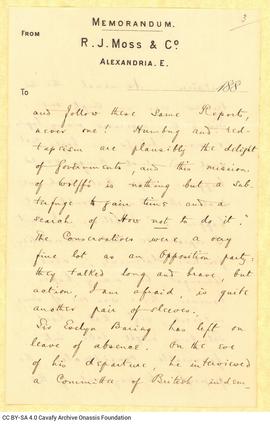 3
MEMORANDUM.
FROM
R. J. MOSS & Co.
ALEXANDRIA. E.
188
TO
and follow these same Reports,
never one! Humbug and red-
tapeism are plausibly the delight
of Governments, and this mission
of Wolff's is nothing but a sub-
terfuge to gain time and a
search of "How not to do it."
The Conservatives were a very
fine lot as an Opposition party:
they talked long and brave, but
action, I am afraid, is quite
another pair of sleeves.
Sir Evelyn Baring has left on
leave of absence. On the eve
of his departure, he interviewed
a Committee of British indem-
CC BY-SA 4.0 Cavafy Archive Onassis Foundation